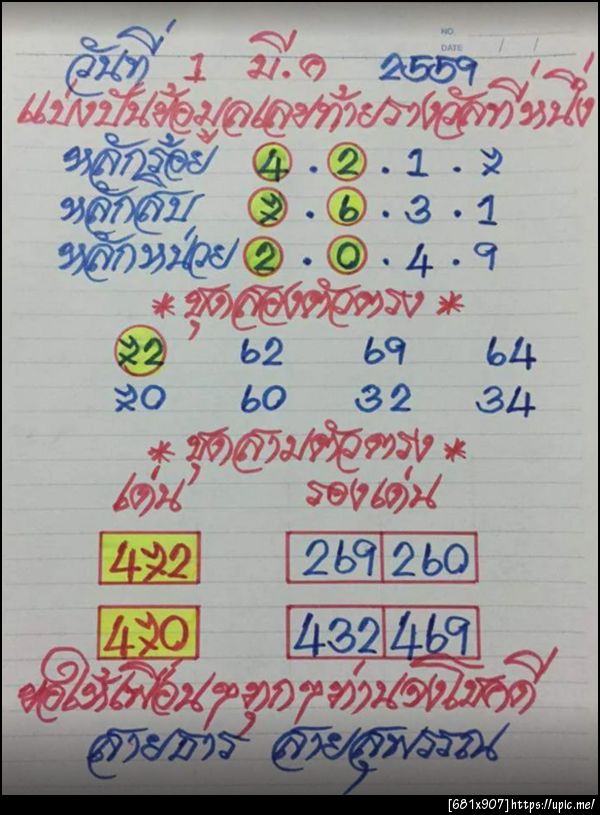 NO.
DATE / /
วันที่ 1 มี.ค 2559
แบ่งปันข้อมูลเลขท้ายรางวัลที่หนึ่ง
หลักร้อย 4 . 2 . 1 . 7
หลักสิบ 7 . 6 . 3 . 1
หลักหน่วย 2 . 0 . 4 . 9
* ชุดสองตัวตรง *
72 62 69 64
70 60 32 34
* ชุดสามตัวตรง *
เด่น รองเด่น
472 269 260
470 432 469
ขอให้เพื่อนๆทุกๆท่านจงโชคดี
สายธาร สายสุพรรณ
[681x907]https://upic.me/